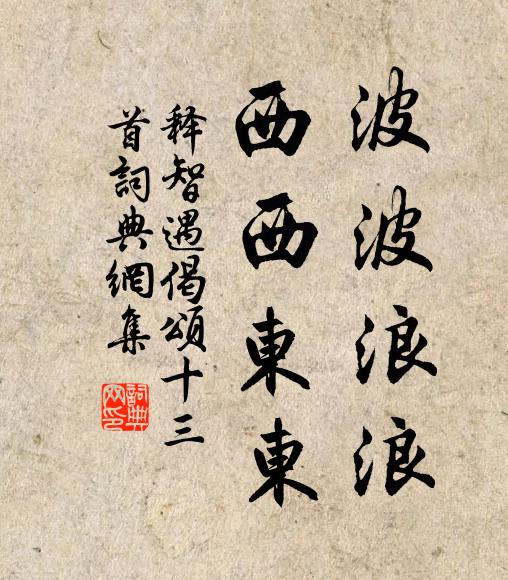 波波浪浪
西西東東
释智遇偈頌十三
首詞典網集
詞典
网印